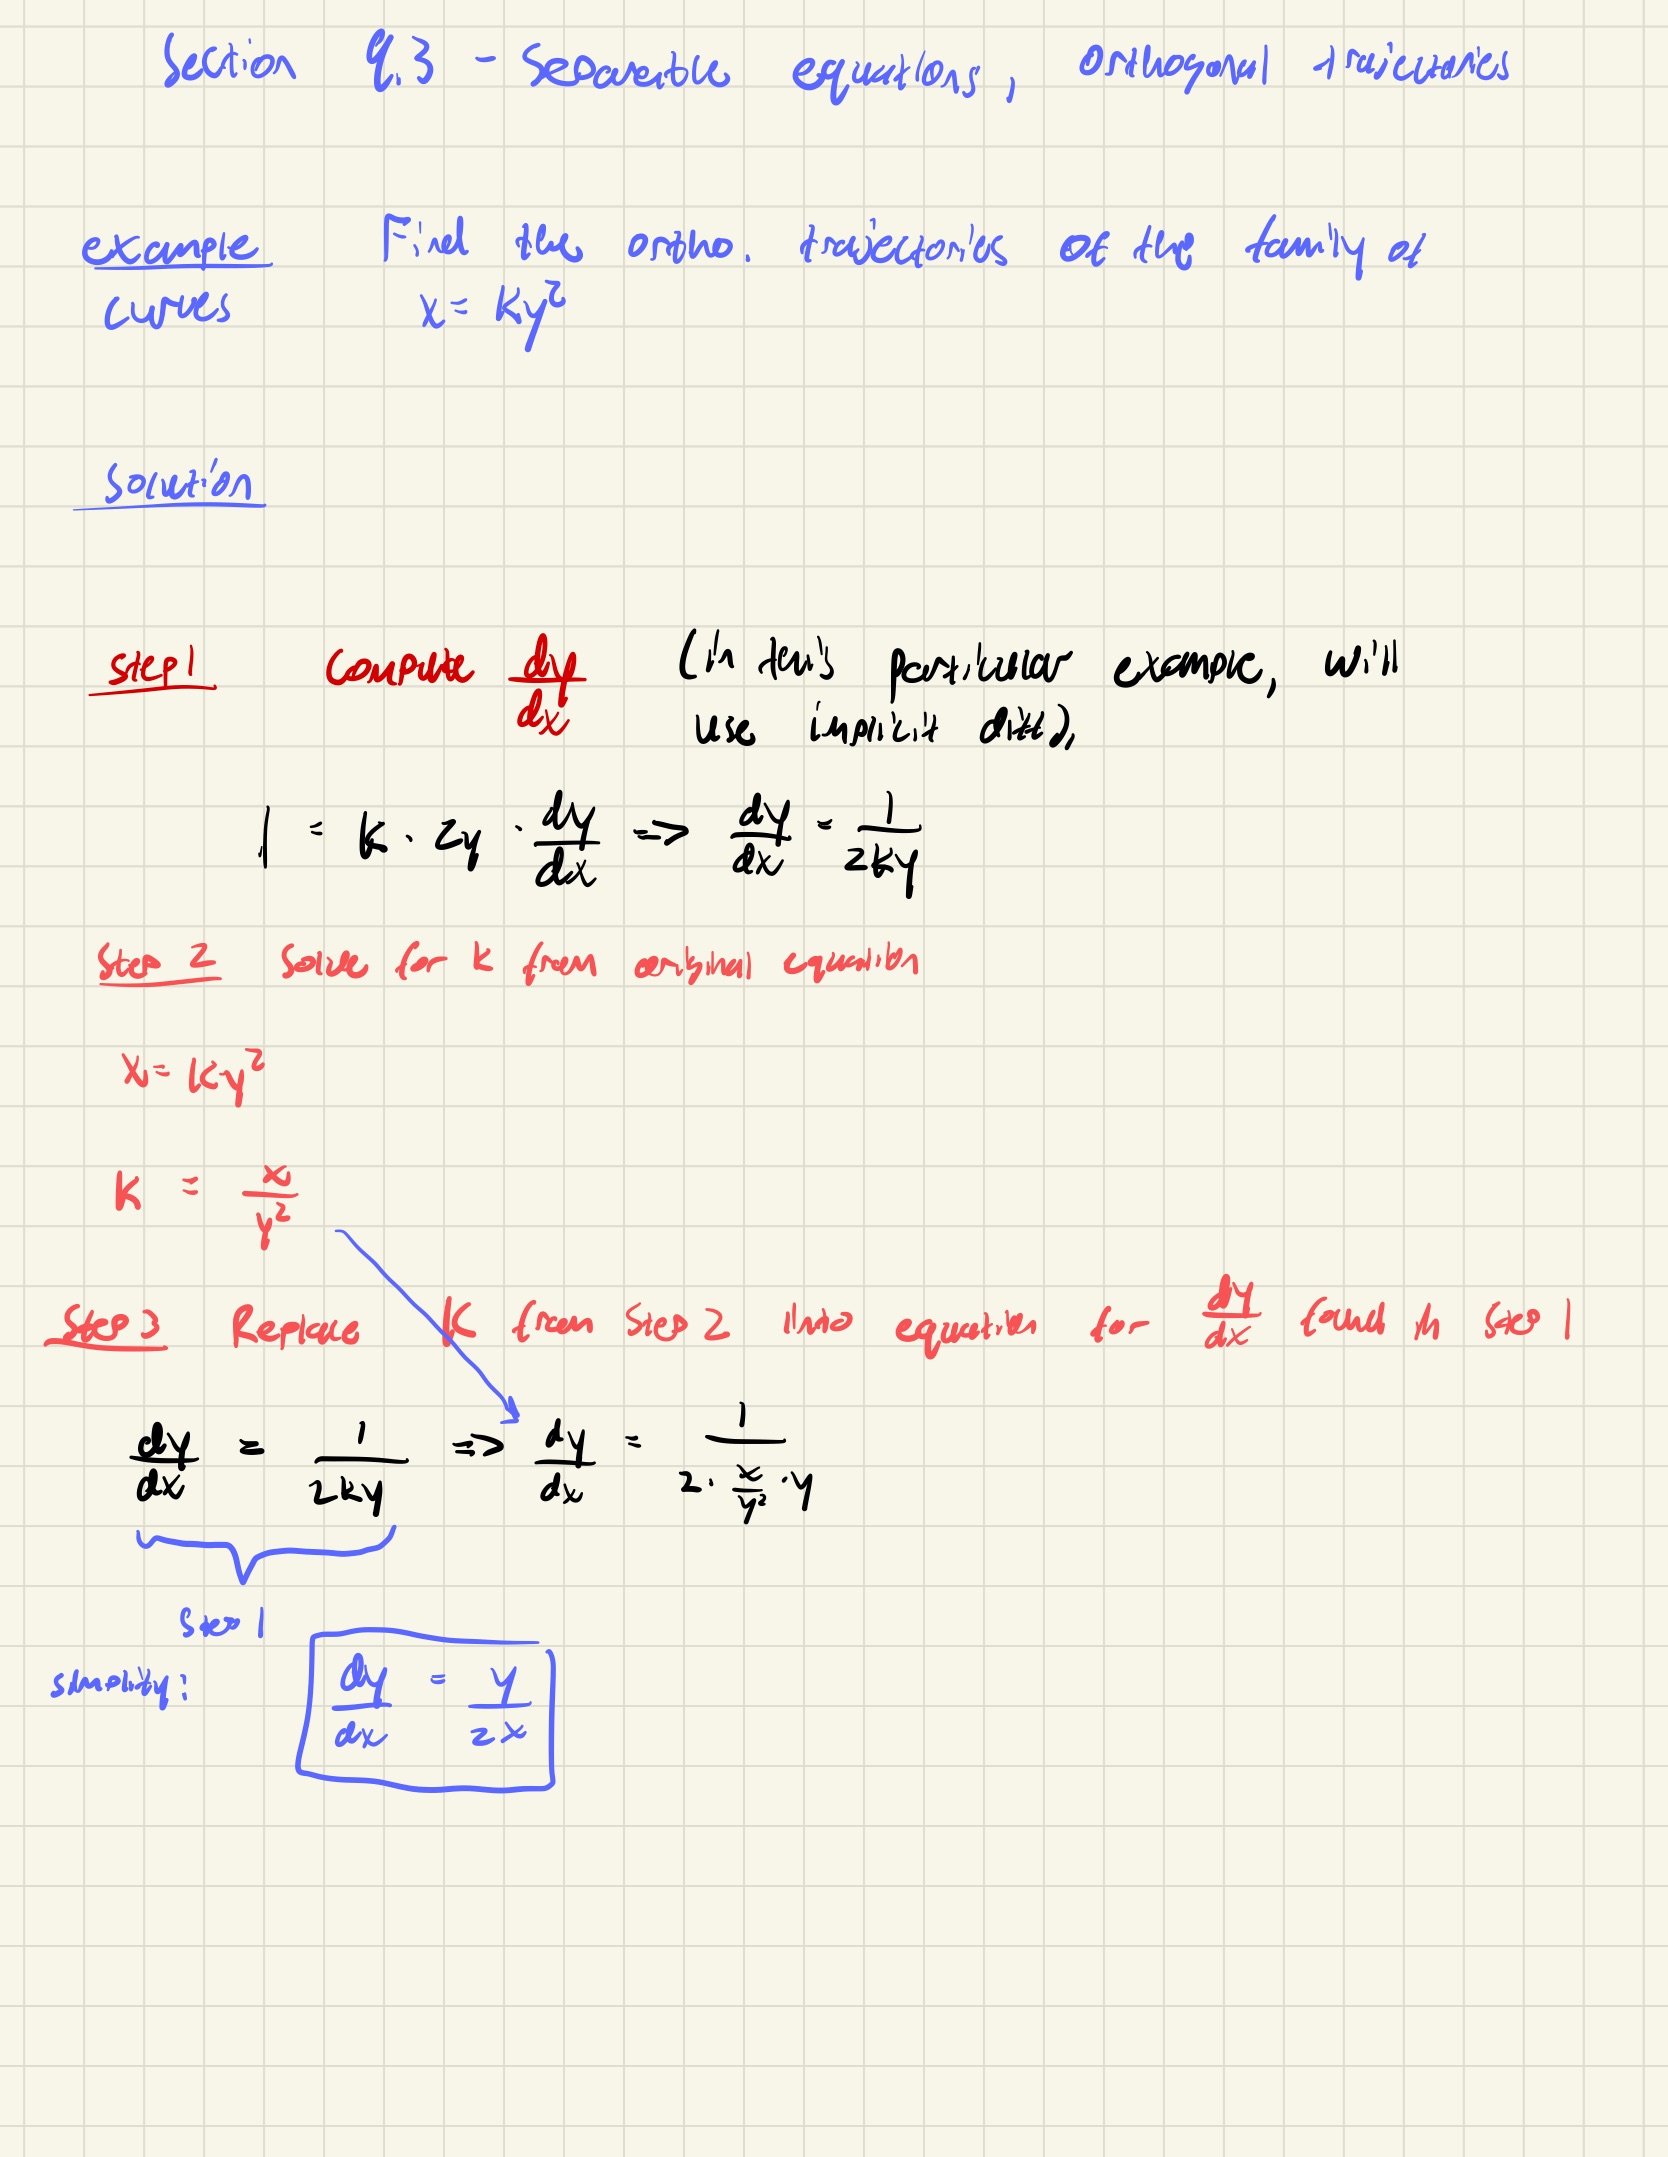 Section 9.3 - Separable equations, orthogonal trajectories
example Find the ortho. trajectories of the family of
curves x = ky²
Solution
Step 1 Compute dy/dx (in this particular example, will
use implicit diff),
1 = k · 2y · dy/dx => dy/dx = 1/2ky
Step 2 Solve for k from original equation
x = ky²
k = x/y²
Step 3 Replace K from Step 2 into equation for dy/dx found in Step 1
dy/dx = 1/2ky => dy/dx = 1/(2 · x/y² · y)
Step 1
simplify: dy/dx = y/2x